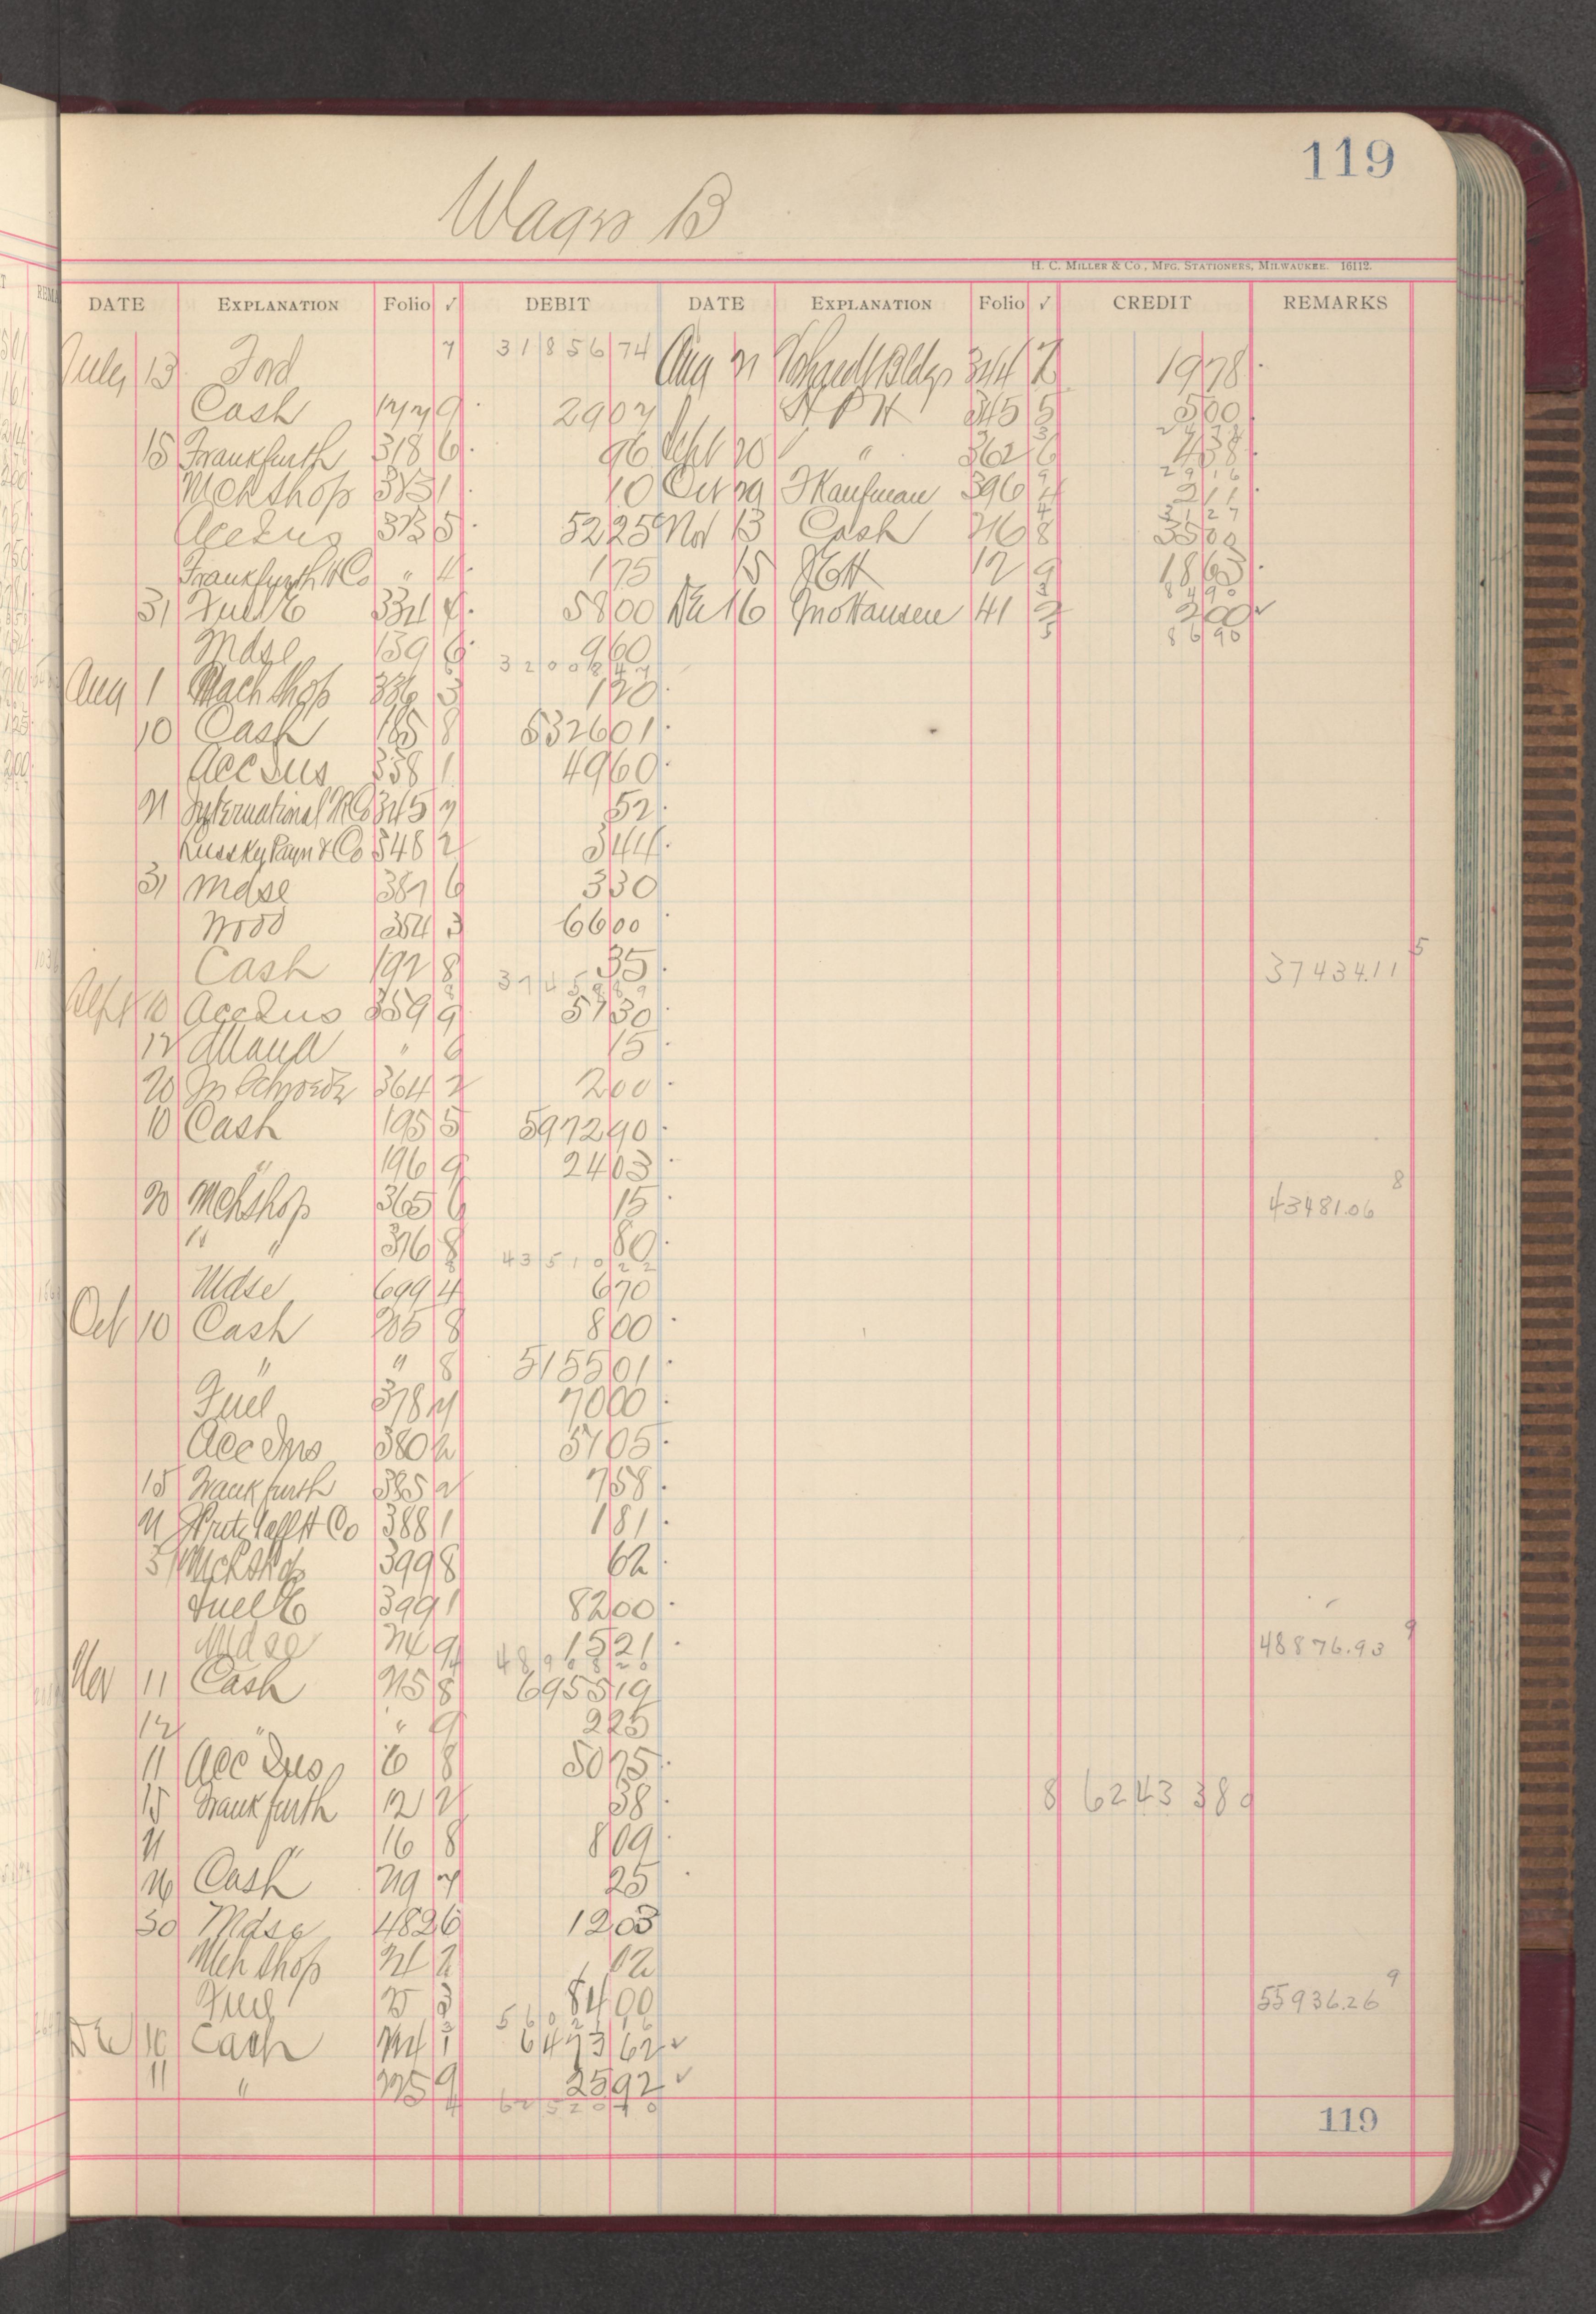 119
Wages B
H. C. Miller & Co., Mfg. Stationers, Milwaukee. 16112.
DATE Explanation Folio √ DEBIT DATE Explanation Folio √ CREDIT REMARKS
July 13 Ford 7 31856 74 Aug 21 Bldgs 344 7 19 78
Cash 177 9 29 07 H P H 345 5 5 00
15 Frankfurth 318 6 96 Sept 20 " " 362 6 4 38
Mchshop 313 1 10 Oct 29 F Kaufman 396 4 2 11
Acc Ins 313 5 52 25 Nov 13 Cash 216 8 35 00
Frankfurth H Co " 4 1 75 15 12 9 18 63
31 Fuel E 334 4 58 00 Dec 16 Jno Hansen 41 2 2 00 √
86 90
Mdse 139 6 9 60
Aug 1 Mach Shop 336 3 1 20
10 Cash 185 8 5326 01
Acc Ins 338 1 49 60
21 International H Co 345 7 52
348 2 3 44
31 Mdse 387 6 3 30
Wood 354 3 66 00
Cash 192 8 35 37434.11 5
37 45 9 89
Sept 10 Acc Ins 359 9 57 30
12 " 6 15
20 Schroeder 364 2 2 00
10 Cash 195 5 5972 90
" 196 9 24 03
20 Mchshop 365 6 15 43481.06 8
" " 376 8 80
43 51 0 22
Mdse 699 4 6 70
Oct 10 Cash 205 8 8 00
" " 8 5155 01
Fuel 378 7 70 00
Acc Ins 380 2 57 05
15 Frankfurth 385 2 7 58
21 Pritzlaff H Co 388 1 1 81
31 Mchshop 399 8 62
Fuel E 399 1 82 00
Mdse 214 9 15 21 48876.93 9
Nov 11 Cash 215 8 6955 19
12 " " 9 2 25
11 Acc Ins 6 8 50 75
15 Frankfurth 12 2 38 8 6243 380
21 " 16 8 8 09
26 Cash 219 7 25
30 Mdse 482 6 12 03
Mch Shop 24 2 12
Fuel 25 3 84 00 55936.26 9
Dec 10 Cash 224 1 6473 62 √
11 " 225 9 25 92 √
62 52 0 70
119